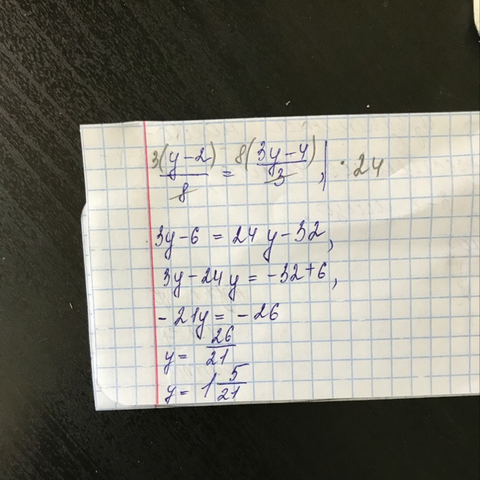 3(y-2)/8 = 8(3y-4)/3, | · 24
3y-6 = 24y-32,
3y-24y = -32+6,
-21y = -26
y = 26/21
y = 1 5/21